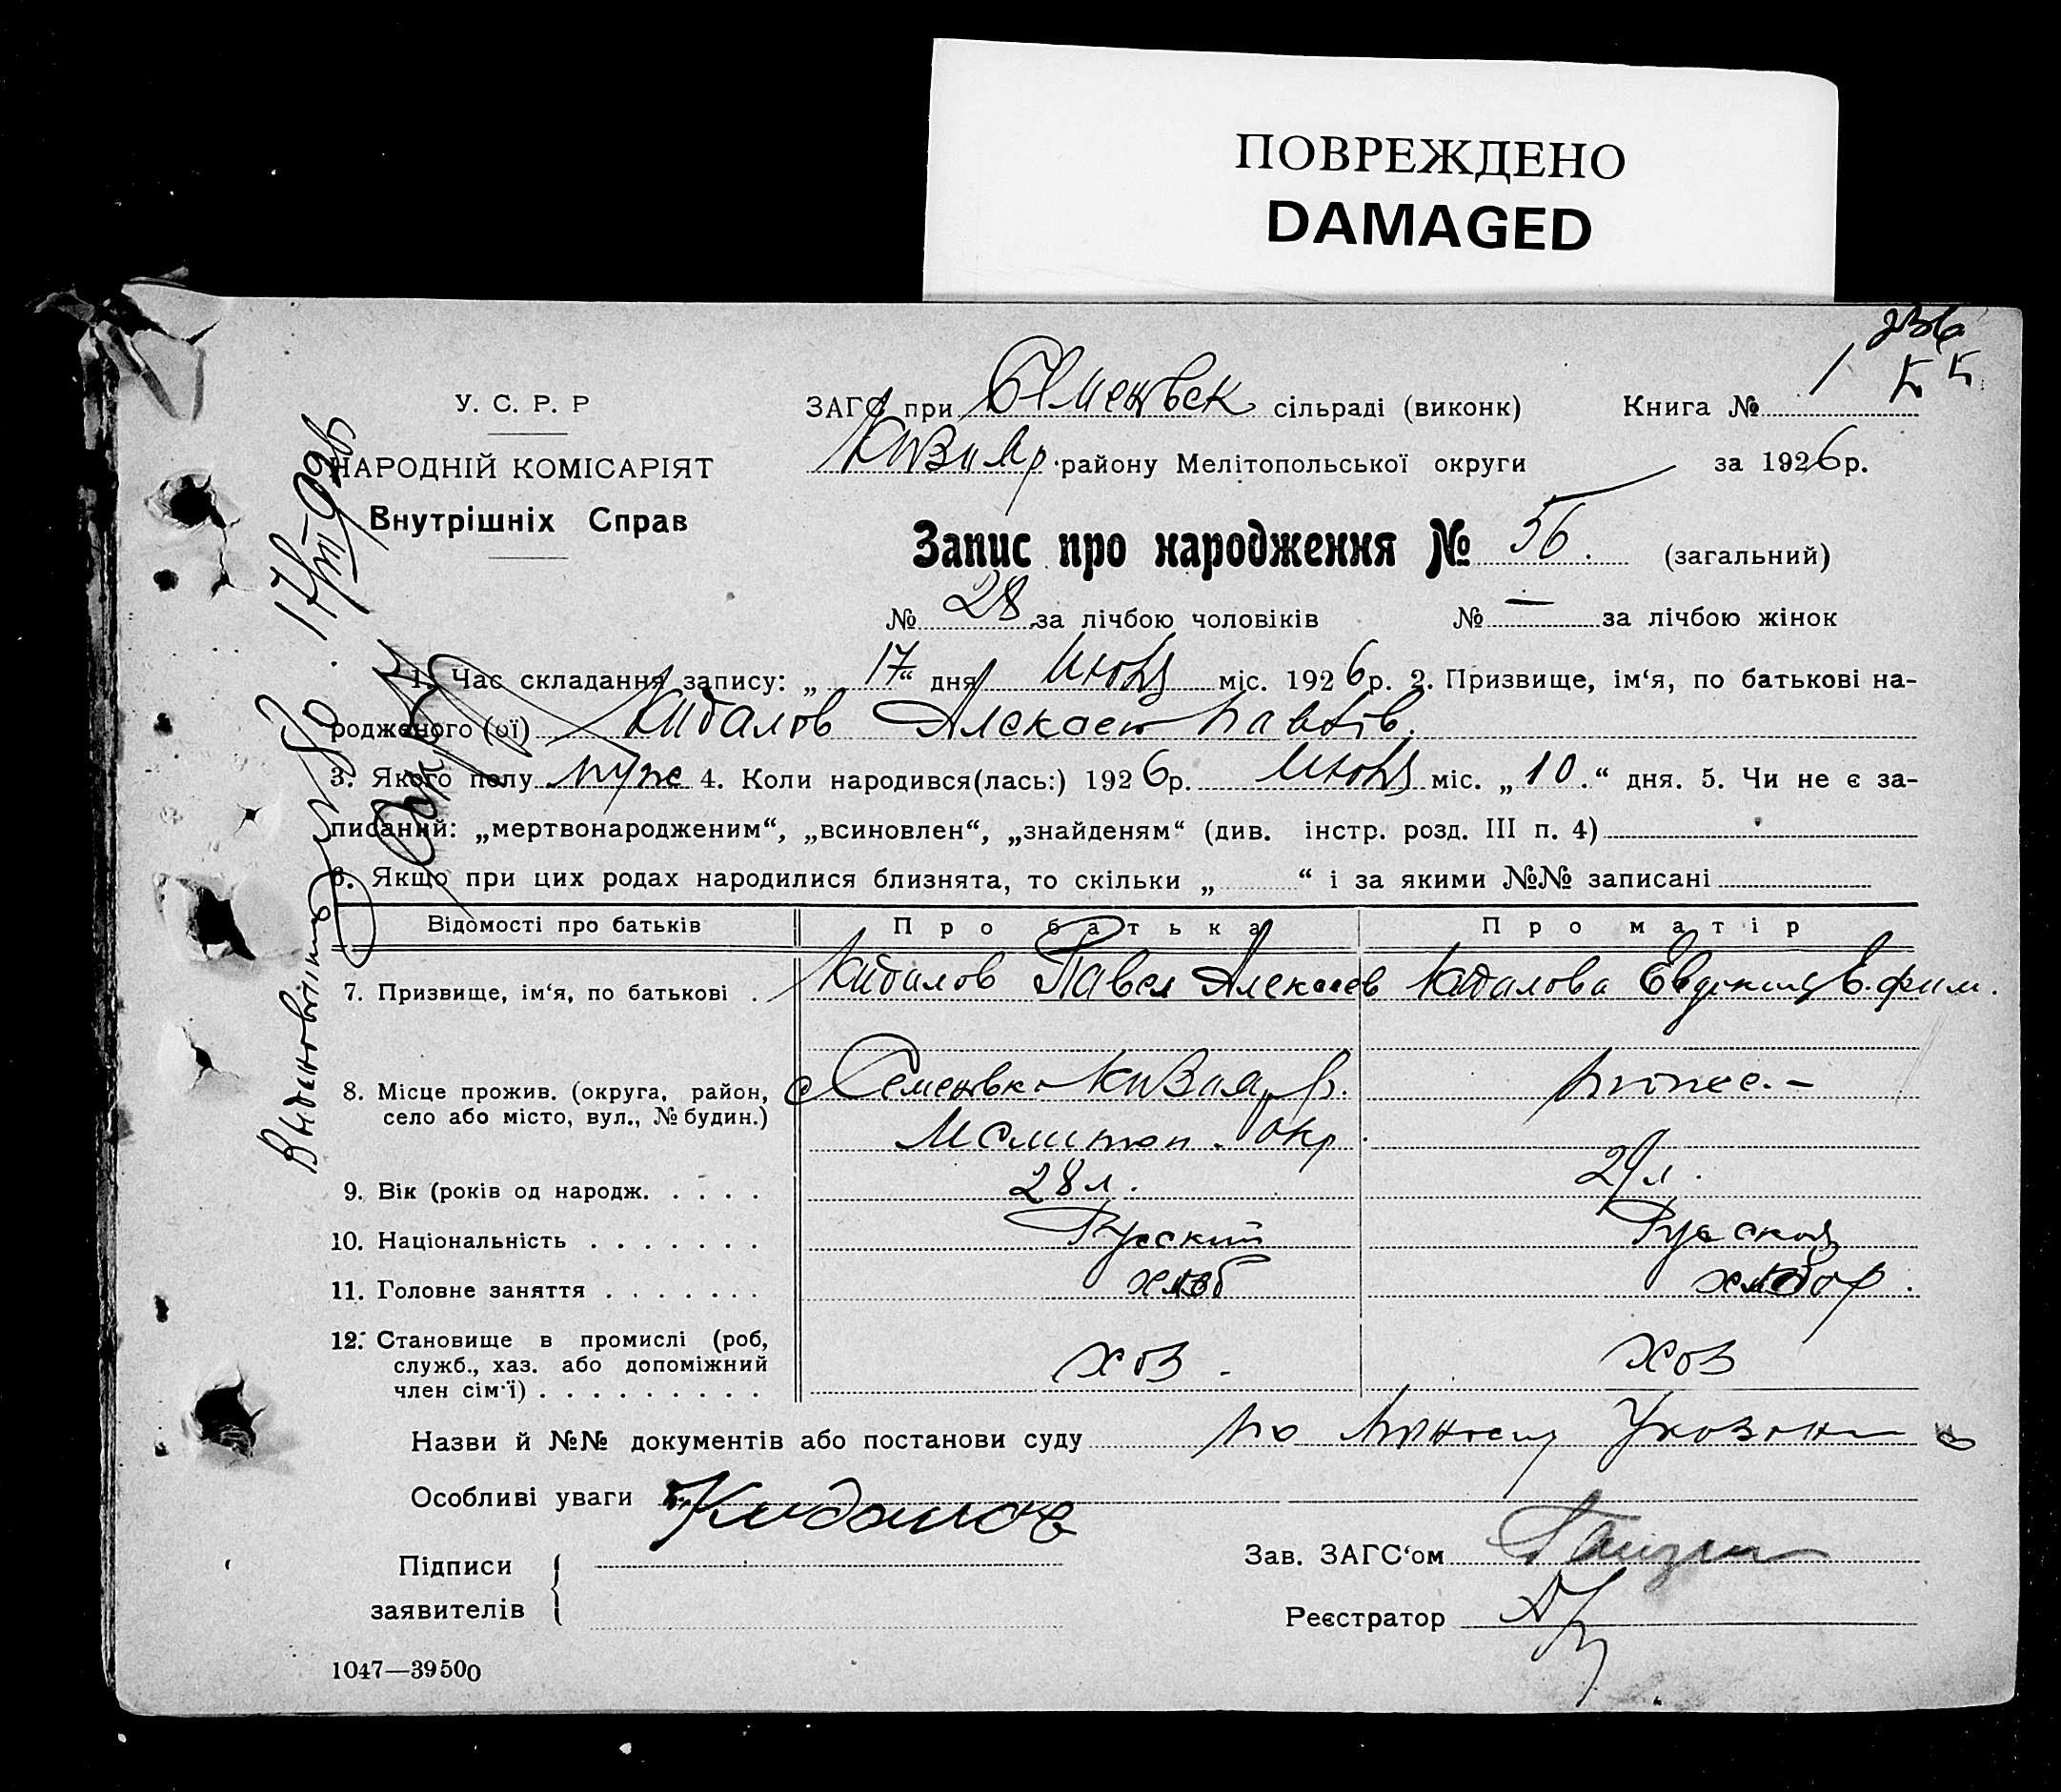 ПОВРЕЖДЕНО
DAMAGED
У. С. Р. Р
НАРОДНІЙ КОМІСАРІЯТ
Внутрішніх Справ
ЗАГС при Семеновск сільраді (виконк) Книга № 1
району Мелітопольської округи за 1926 р.
Запис про народження № 56. (загальний)
№ 28 за лічбою чоловіків № — за лічбою жінок
1. Час складання запису: „17“ дня міс. 1926 р. 2. Призвище, ім‘я, по батькові на-
родженого (ої) Кидалов
3. Якого полу муж 4. Коли народився(лась:) 1926 р. міс. „10.“ дня. 5. Чи не є за-
писаний: „мертвонародженим“, „всиновлен“, „знайденям“ (див. інстр. розд. III п. 4)
6. Якщо при цих родах народилися близнята, то скільки „ “ і за якими №№ записані
Відомості про батьків Про батька Про матір
7. Призвище, ім‘я, по батькові . Кидалов Павел Алексеев Кидалова Евдокия Ефим.
8. Місце прожив. (округа, район, с Семеновка тоже. –
село або місто, вул., № будин.) Мелитоп. окр.
9. Вік (років од народж. . . . . 28 л. 29 л.
10. Національність . . . . . . . Русский Русская
11. Головне заняття . . . . . . . хлеб хлебор.
12. Становище в промислі (роб,
служб., хаз. або допоміжний хоз - хоз
член сім‘ї) . . . . . . . . .
Назви й №№ документів або постанови суду по
Особливі уваги Кидалов
Підписи
заявителів
Зав. ЗАГС‘ом
Реєстратор
1047—39500